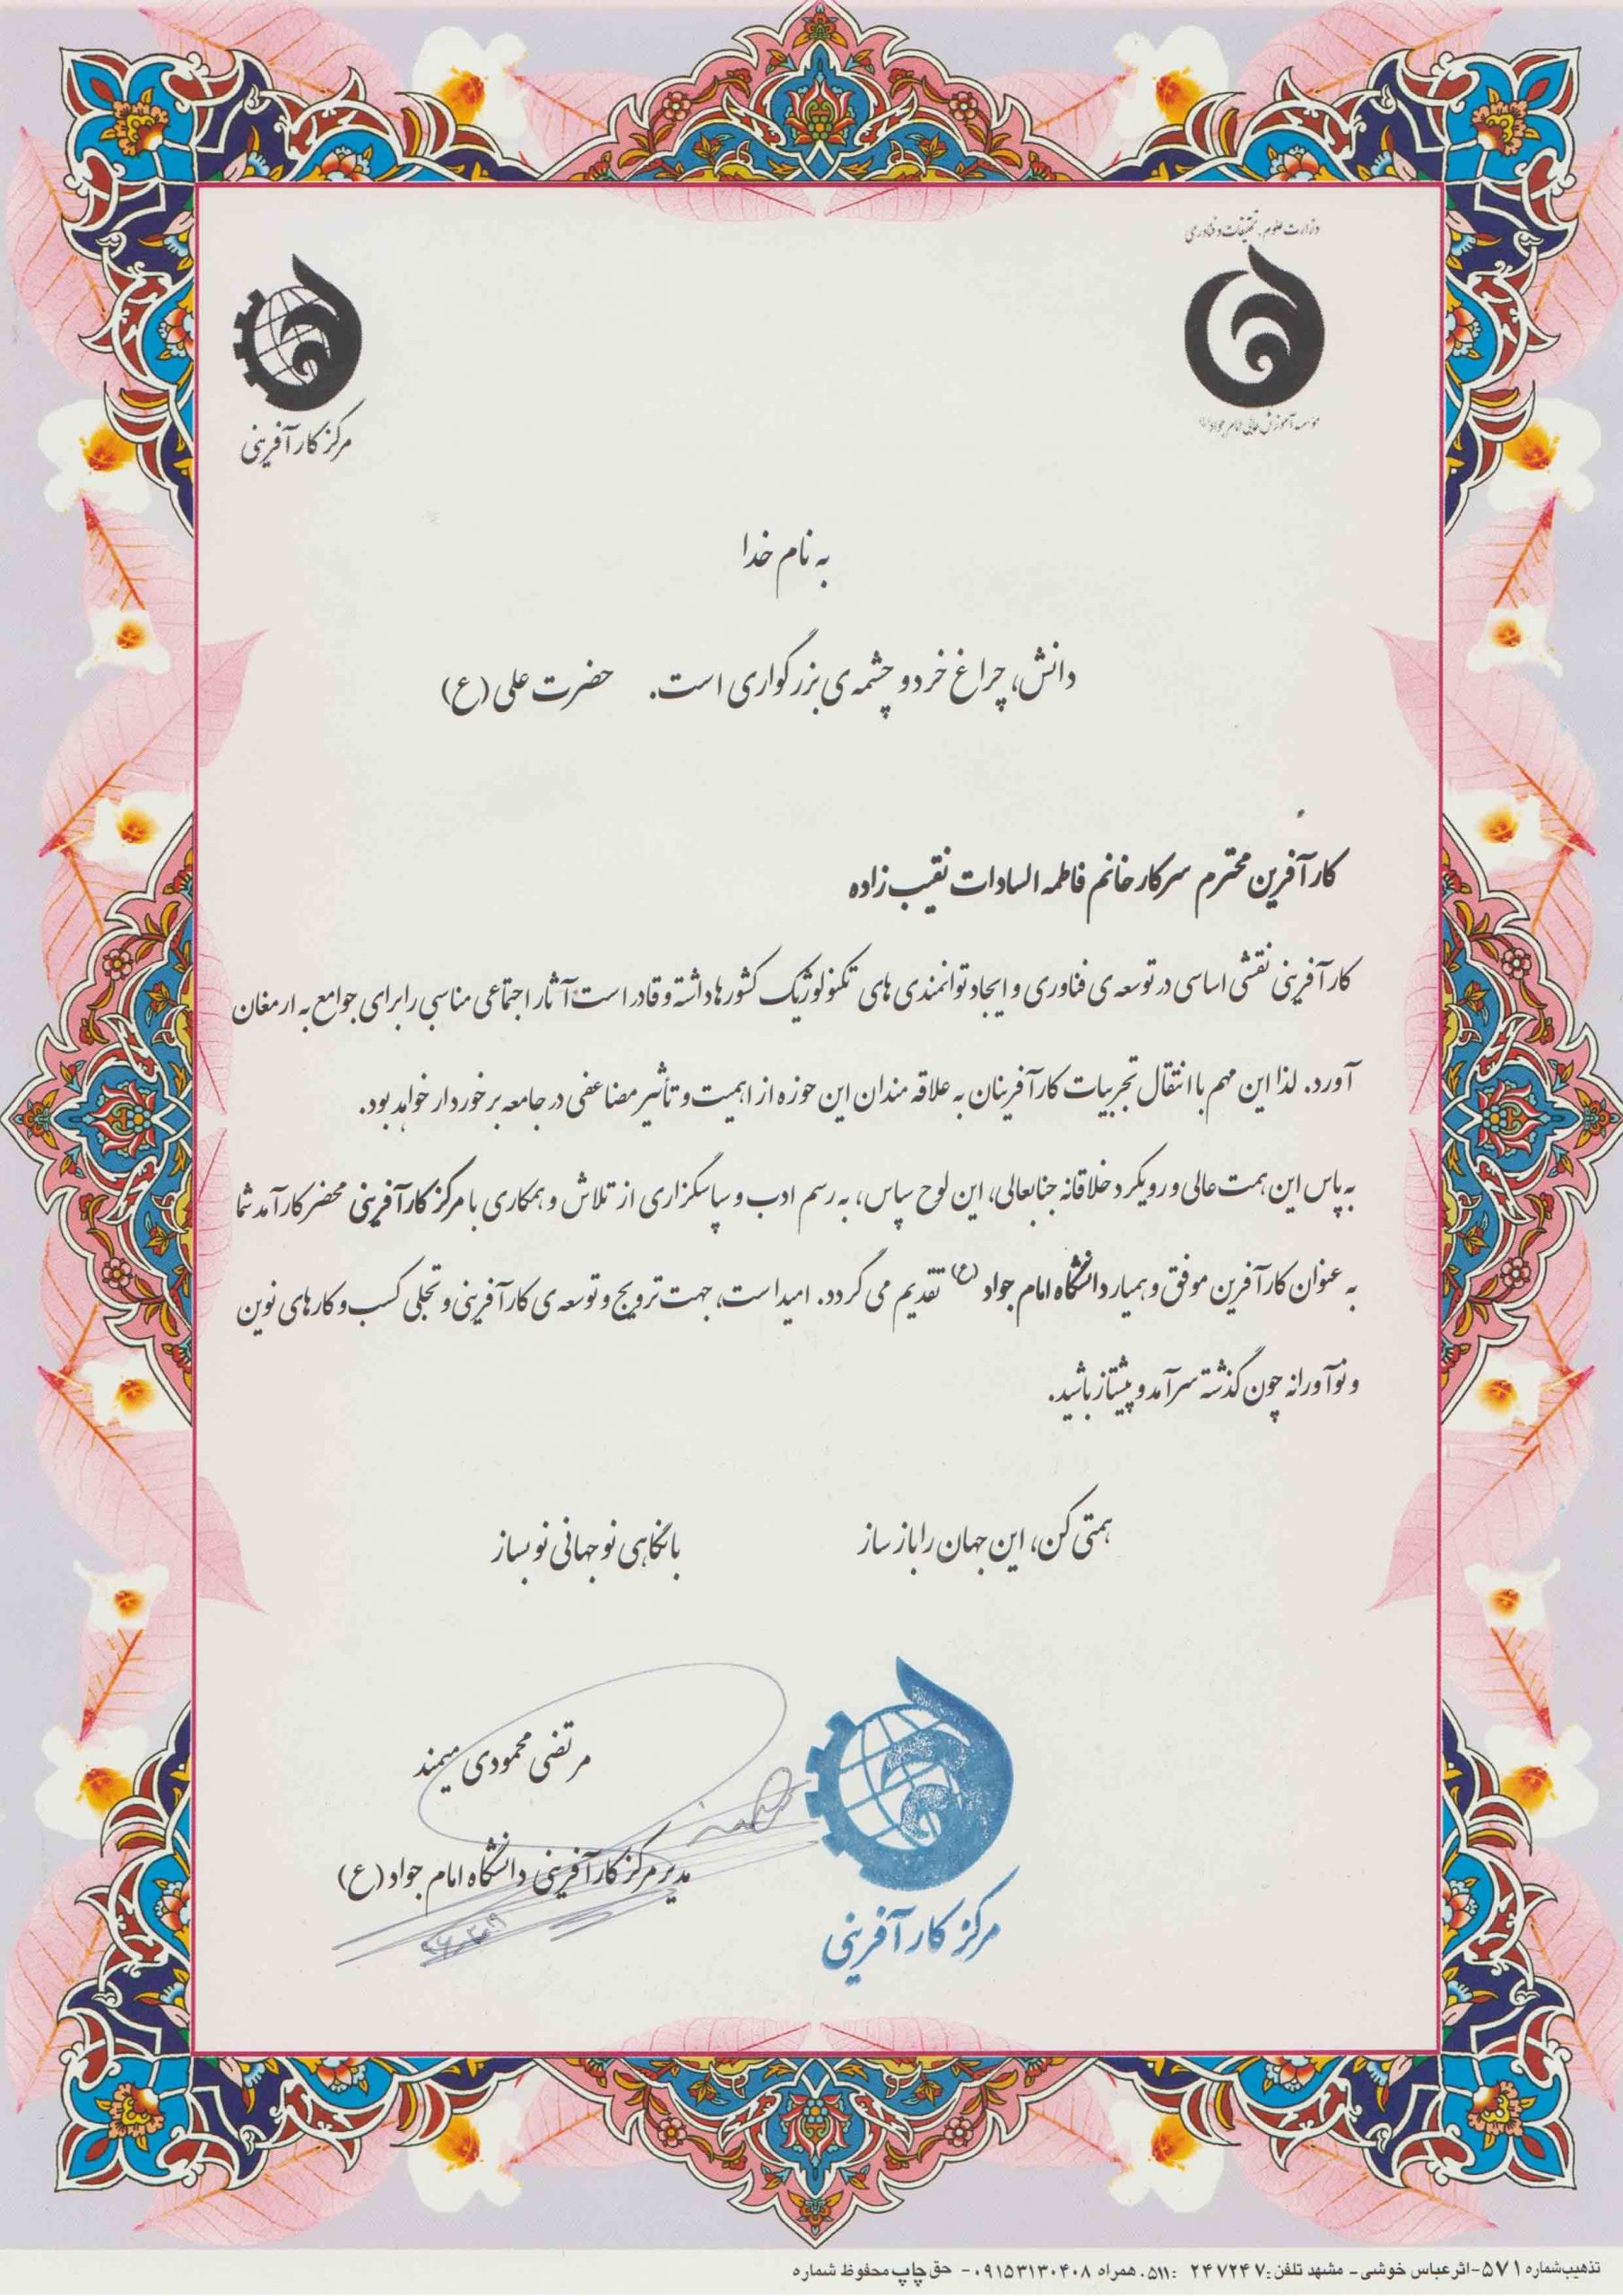 وزارت علوم، تحقیقات و فناوری
موسسه آموزش عالی امام جواد (ع)
مرکز کارآفرینی
به نام خدا
دانش، چراغ خرد و چشمه ی بزرگواری است. حضرت علی (ع)
کارآفرین محترم سرکار خانم فاطمه السادات نقیب زاده
کارآفرینی نقشی اساسی در توسعه ی فناوری و ایجاد توانمندی های تکنولوژیک کشورها داشته و قادر است آثار اجتماعی مناسبی را برای جوامع به ارمغان
آورد. لذا این مهم با انتقال تجربیات کارآفرینان به علاقه مندان این حوزه از اهمیت و تأثیر مضاعفی در جامعه برخوردار خواهد بود.
به پاس این همت عالی و رویکرد خلاقانه جنابعالی، این لوح سپاس، به رسم ادب و سپاسگزاری از تلاش و همکاری با مرکز کارآفرینی محضر کارآمد شما
به عنوان کارآفرین موفق و همیار دانشگاه امام جواد (ع) تقدیم می گردد. امید است، جهت ترویج و توسعه ی کارآفرینی و تجلی کسب و کارهای نوین
و نوآورانه چون گذشته سرآمد و پیشتاز باشید.
همتی کن، این جهان را باز ساز با نگاهی نو جهانی نو بساز
مرتضی محمودی میمند
مدیر مرکز کارآفرینی دانشگاه امام جواد (ع)
مرکز کارآفرینی
تذهیب شماره ۵۷۱-اثر عباس خوشی- مشهد تلفن: ۲۴۷۲۴۷ :۰۵۱۱ همراه ۰۹۱۵۳۱۳۰۴۰۸- حق چاپ محفوظ شماره